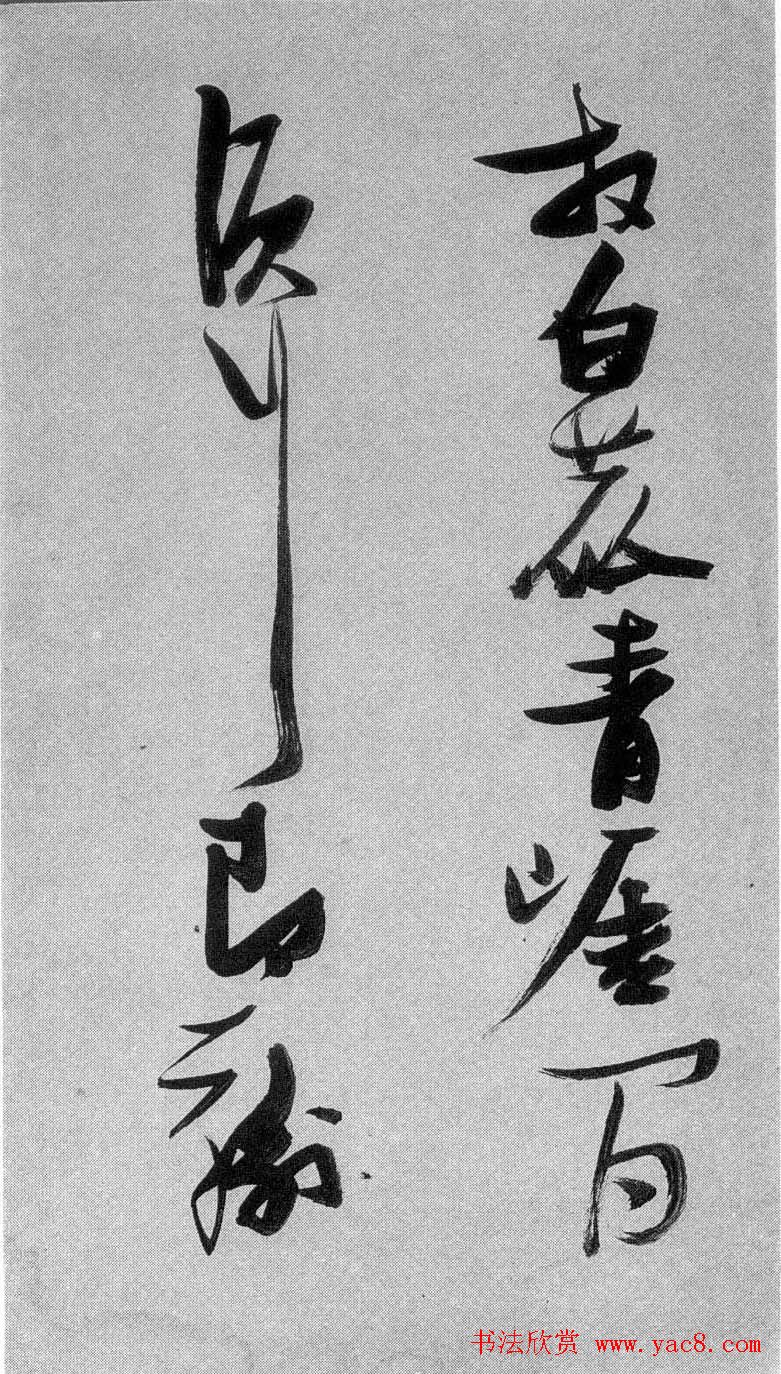 放白鹿青崖間
須行即騎
书法欣赏 www.yac8.com